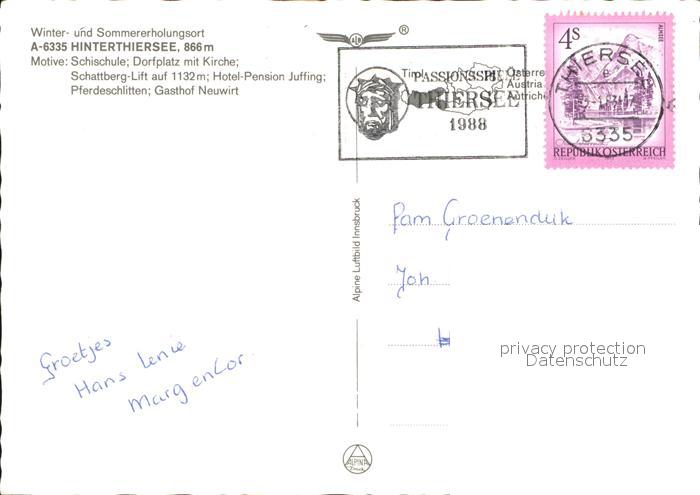 Winter- und Sommererholungsort
A-6335 HINTERTHIERSEE, 866 m
Motive: Schischule; Dorfplatz mit Kirche;
Schattberg-Lift auf 1132 m; Hotel-Pension Juffing;
Pferdeschlitten; Gasthof Neuwirt
®
PASSIONSSPI
THIERSEE
1988
Tirol
Österre
Austria
Autriche
4S
ALMSEE
THIERSEE
6335
REPUBLIK ÖSTERREICH
Alpine Luftbild Innsbruck
Fam Groenendijk
Joh.
Groetjes
Hans Lenie
Marg en Cor.
privacy protection
Datenschutz
ALPINA